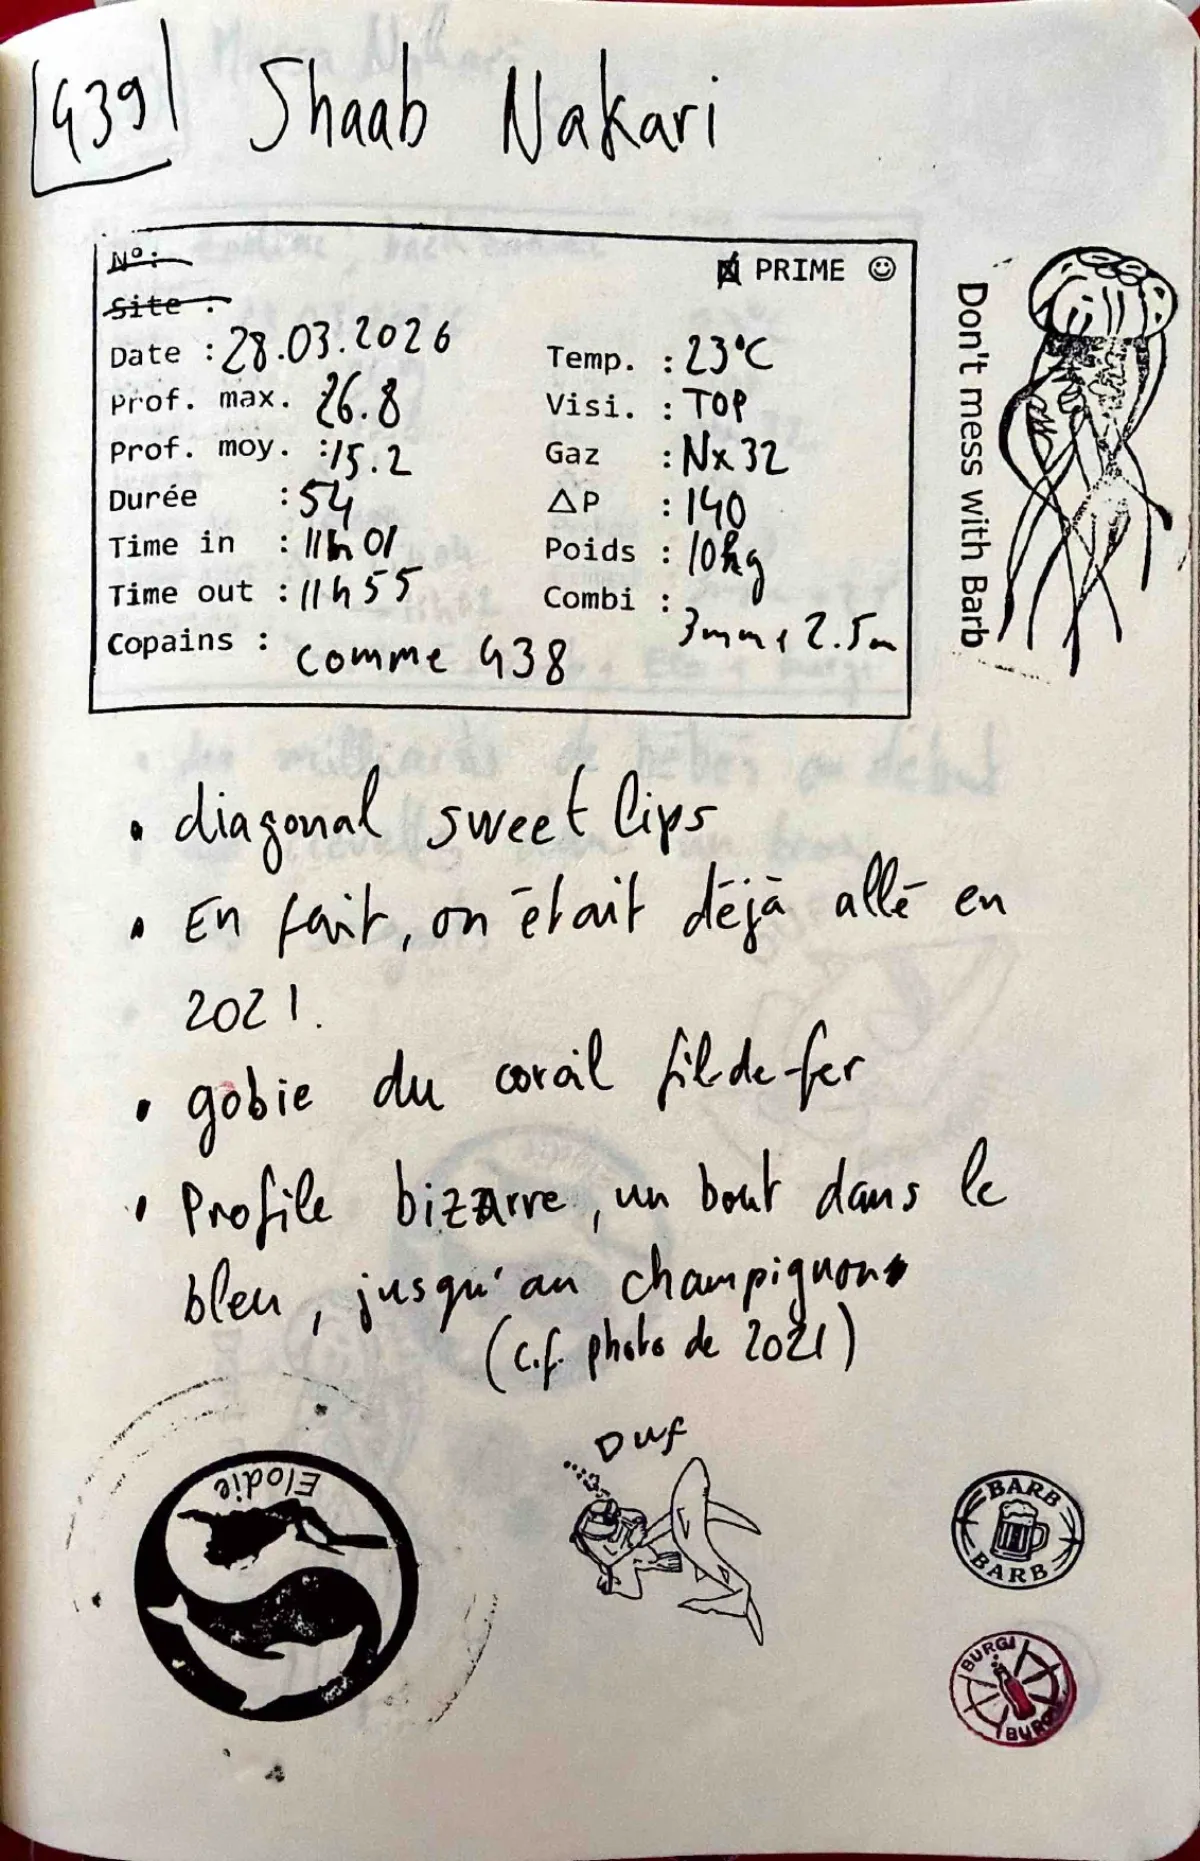 439 Shaab Nakari
N° :
PRIME ☺
Site :
Date : 28.03.2026
Temp. : 23°C
Prof. max. 26.8
Visi. : TOP
Prof. moy. : 15.2
Gaz : Nx32
Durée : 54
△P : 140
Time in : 11h01
Poids : 10kg
Time out : 11h55
Combi : 3mm + 2.5m
Copains : comme 438
Don't mess with Barb
• diagonal sweet lips
• En fait, on était déjà allé en
2021.
• gobie du corail fil-de-fer
• Profile bizarre, un bout dans le
bleu, jusqu'au champignon
(c.f. photo de 2021)
Elodie
Duf
BARB
BARB
BURGI
BURGI